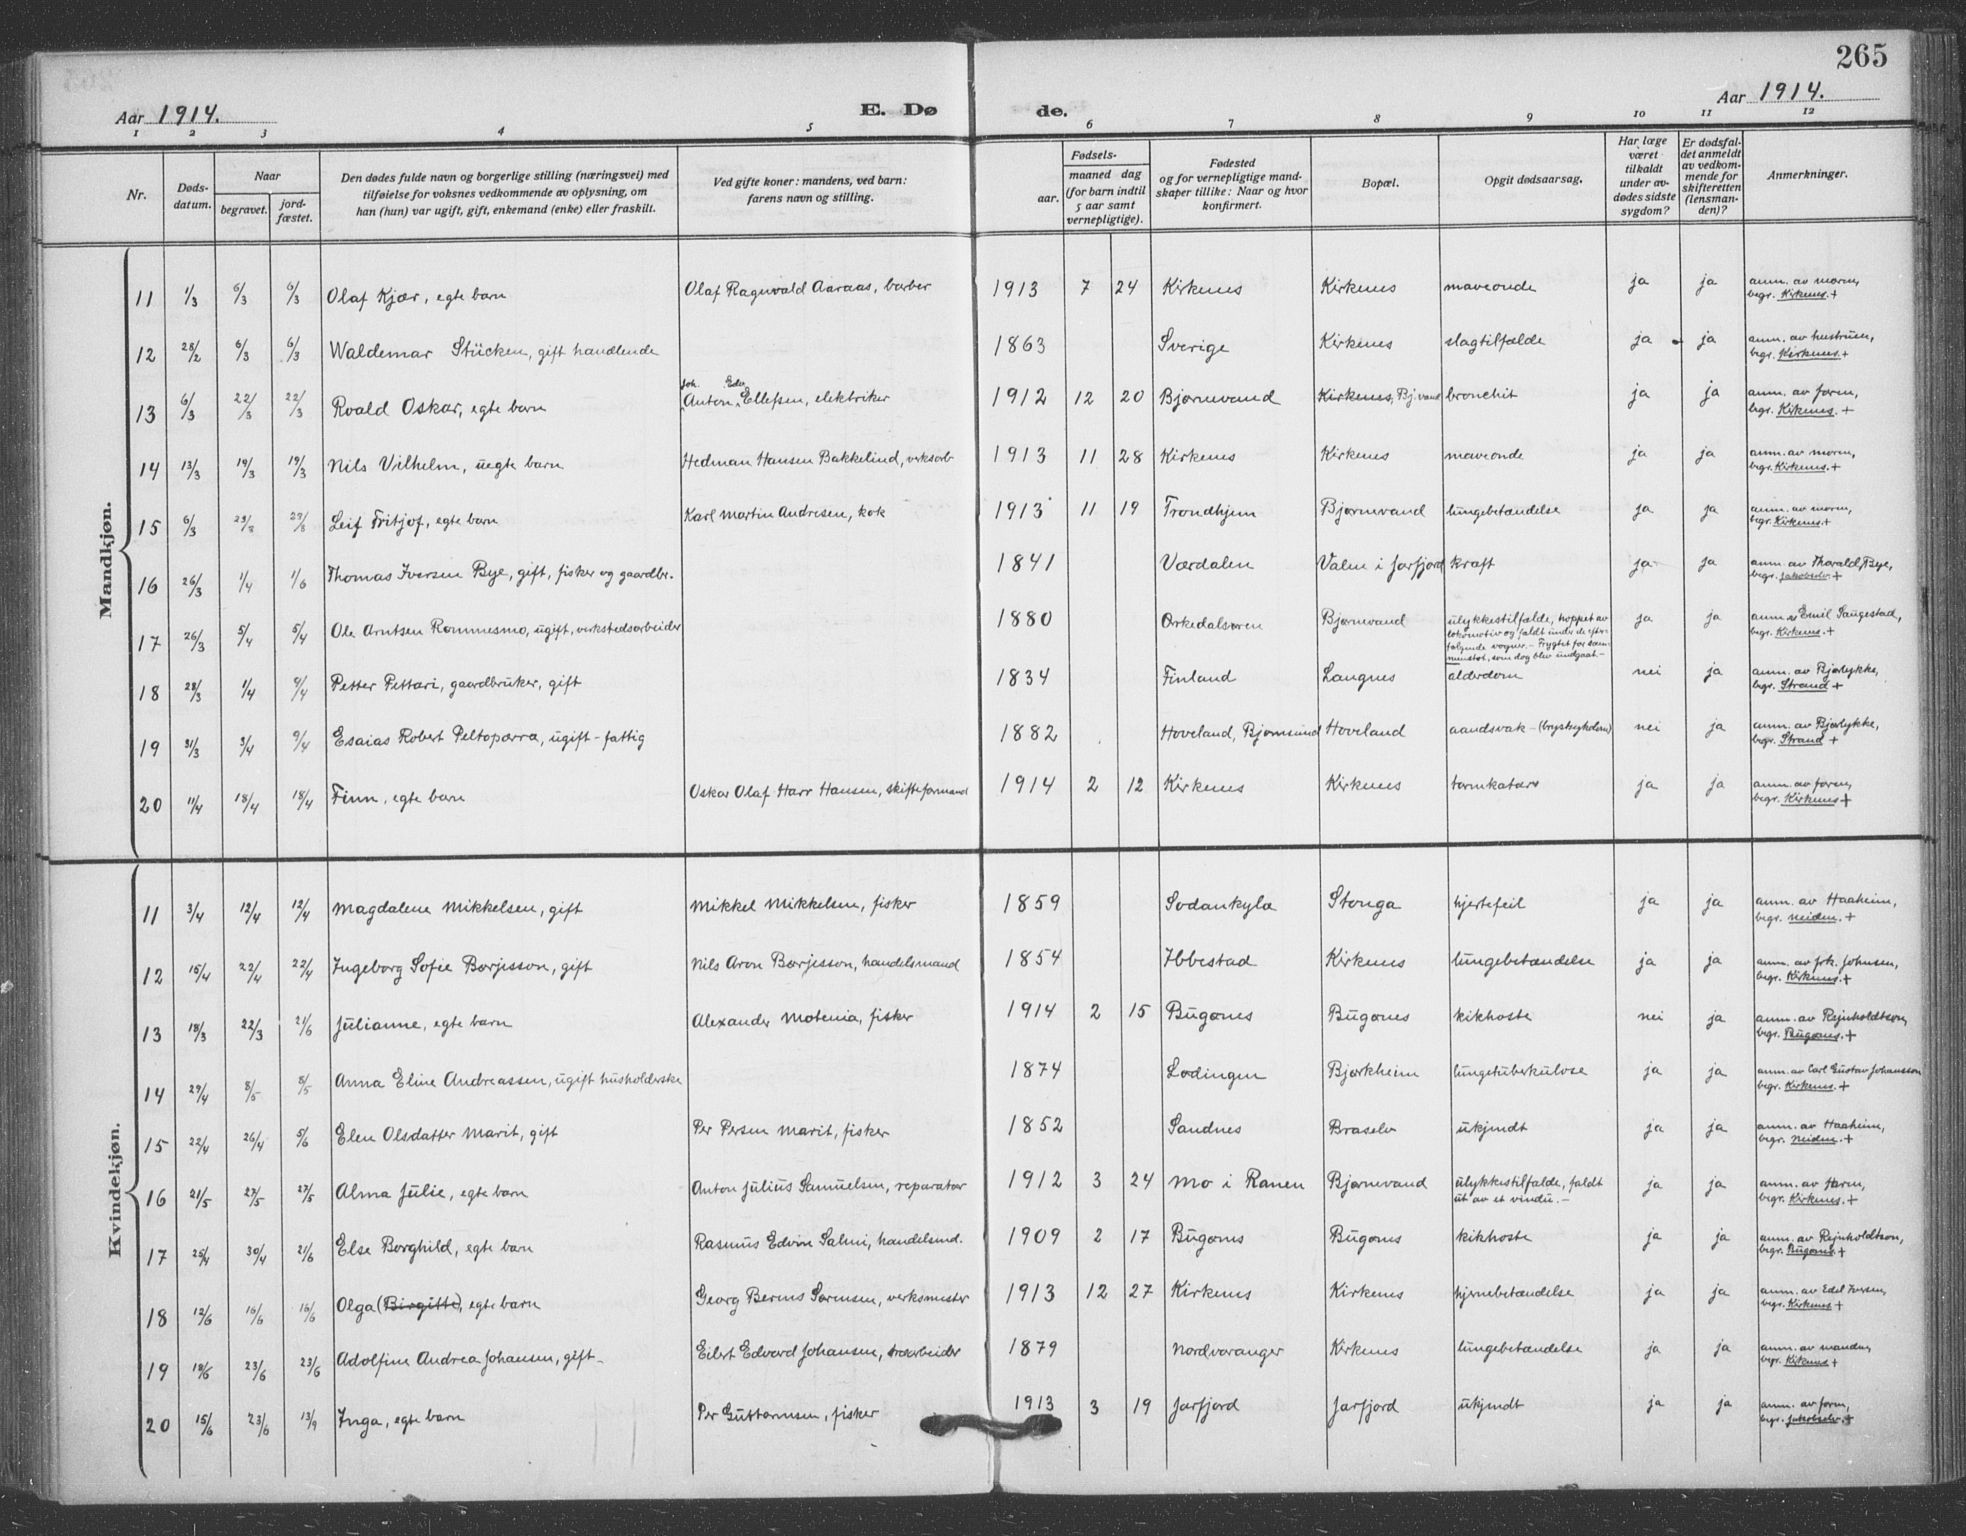 265
Aar 1914.
E. Dø de.
Aar 1914.
1 2 3 4 5 6 7 8 9 10 11 12
Nr.
Døds-
datum.
Naar
begravet.
jord-
fæstet.
Den dødes fulde navn og borgerlige stilling (næringsvei) med
tilføielse for voksnes vedkommende av oplysning, om
han (hun) var ugift, gift, enkemand (enke) eller fraskilt.
Ved gifte koner: mandens, ved barn:
farens navn og stilling.
Fødsels-
aar.
maaned dag
(for barn indtil
5 aar samt
vernepligtige).
Fødested
og for vernepligtige mand-
skaper tillike: Naar og hvor
konfirmert.
Bopæl.
Opgit dødsaarsag.
Har læge
været
tilkaldt
under av-
dødes sidste
sygdom?
Er dødsfal-
det anmeldt
av vedkom-
mende for
skifteretten
(lensman-
den)?
Anmerkninger.
Mandkjøn.
11 1/3 6/3 6/3 Olaf Kjær, egte barn Olaf Ragnvald Aaraas, barber 1913 7 24 Kirkenes Kirkenes maveonde ja ja anm. av moren,
begr. Kirkenes.+
12 28/2 6/3 6/3 Waldemar Stücken, gift handlende 1863 Sverige Kirkenes slagtilfælde ja ja anm. av hustruen,
begr. Kirkenes.+
Joh. Edv.
13 6/3 22/3 22/3 Roald Oskar, egte barn Anton Ellefsen, elektriker 1912 12 20 Bjørnevand Kirkenes, Bj.vand bronchit ja ja anm. av faren,
begr. Kirkenes. +
14 13/3 19/3 19/3 Nils Vilhelm, uegte barn Hedman Hansen Bakkelind, verksarb 1913 11 28 Kirkenes Kirkenes maveonde ja ja anm. av moren,
begr. Kirkenes.+
15 6/3 23/3 23/3 Leif Fritjof, egte barn Karl Martin Andresen, kok 1913 11 19 Trondhjem Bjørnevand lungebetændelse ja ja anm. av moren,
begr. Kirkenes.+
16 26/3 1/4 1/6 Thomas Iversen Bye, gift, fisker og gaardbr. 1841 Værdalen Valen i Jarfjord kræft ja ja anm. av Thorald Bye,
begr. Jakobselv +
17 26/3 5/4 5/4 Ole Arntsen Rømmesmo, ugift, verkstedsarbeider 1880 Orkedalsøren Bjørnevand ulykkestilfælde, hoppet av
lokomotiv og faldt under de efter-
følgende vogner. - Frygtet for sam-
menstøt, som dog blev undgaat.- ja ja anm. av Emil Saugestad,
begr. Kirkenes. +
18 28/3 1/4 9/4 Petter Pettari, gaardbruker, gift 1834 Finland Langnes alderdom nei ja anm. av Bjørlykke,
begr. Strand +
19 31/3 3/4 9/4 Esaias Robert Peltoperra, ugift - fattig 1882 Hoveland, Bjørnsund Hoveland aandsvak - (brystsykdom) nei ja anm. av Bjørlykke,
begr. Strand +
20 11/4 18/4 18/4 Finn, egte barn Oskar Olaf Harr Hansen, skifteformand 1914 2 12 Kirkenes Kirkenes tarmkatarr ja ja anm. av faren,
begr. Kirkenes +
Kvindekjøn.
11 3/4 12/4 12/4 Magdalene Mikkelsen, gift Mikkel Mikkelsen, fisker 1859 Sodankylæ Stonga hjertefeil ja ja anm. av Haaheim,
begr. Neiden. +
12 15/4 22/4 22/4 Ingeborg Sofie Børjesson, gift Nils Aron Børjesson, handelsmand 1854 Ibbestad Kirkenes lungebetændelse ja ja anm. av frk. Johnsen,
begr. Kirkenes.+
13 18/3 22/3 21/6 Julianne, egte barn Alexander Motenia, fisker 1914 2 15 Bugønes Bugønes kikhoste nei ja anm. av Rejnholdtson,
begr. Bugønes. +
14 29/4 8/5 8/5 Anna Eline Andreassen, ugift husholderske 1874 Lødingen Bjørkheim lungetuberkulose ja ja anm. av Carl Gustav Johansson
begr. Kirkenes. +
15 22/4 26/4 5/6 Elen Olsdatter Marit, gift Per Persen Marit, fisker 1852 Sandnes Braselv ukjendt ja ja anm. av Haaheim,
begr. Neiden. +
16 21/5 27/5 27/5 Alma Julie, egte barn Anton Julius Samuelsen, reparatør 1912 3 24 Mo i Ranen Bjørnevand ulykkestilfælde, faldt
ut av et vindu. - ja ja anm. av faren,
begr. Kirkenes. +
17 25/4 30/4 21/6 Else Borghild, egte barn Rasmus Edvin Salmi, handelsmd. 1909 2 17 Bugønes Bugønes kikhoste ja ja anm. av Rejnholdtson,
begr. Bugønes +
18 12/6 16/6 16/6 Olga (Birgitte), egte barn Georg Bernes Sørensen, verksmester 1913 12 27 Kirkenes Kirkenes hjernebetændelse ja ja anm. av Edel Iversen,
begr. Kirkenes +
19 18/6 23/6 23/6 Adolfine Andrea Johansen, gift - Eilert Edvard Johansen, 1879 Nordvaranger Kirkenes lungebetændelse ja ja anm. av manden,
begr. Kirkenes +
20 15/6 23/6 13/9 Inga, egte barn Per Guttormsen, fisker 1913 3 19 Jarfjord Jarfjord ukjendt ja ja anm. av faren,
begr. Jakobselv. +